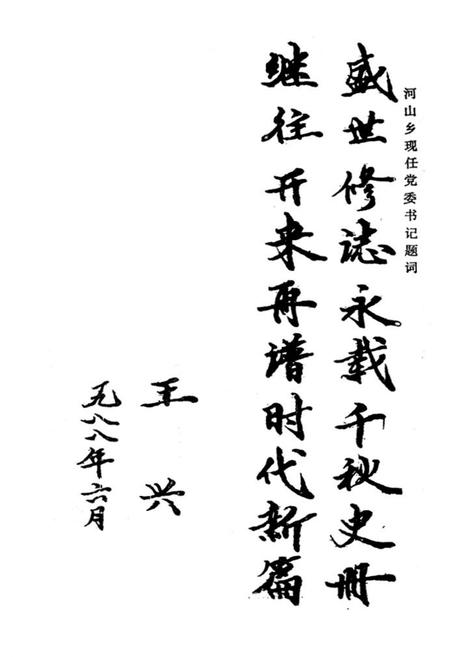 河山乡现任党委书记题词
盛世修誌永载千秋史册
继往开来再谱时代新篇
王兴
一九八八年六月